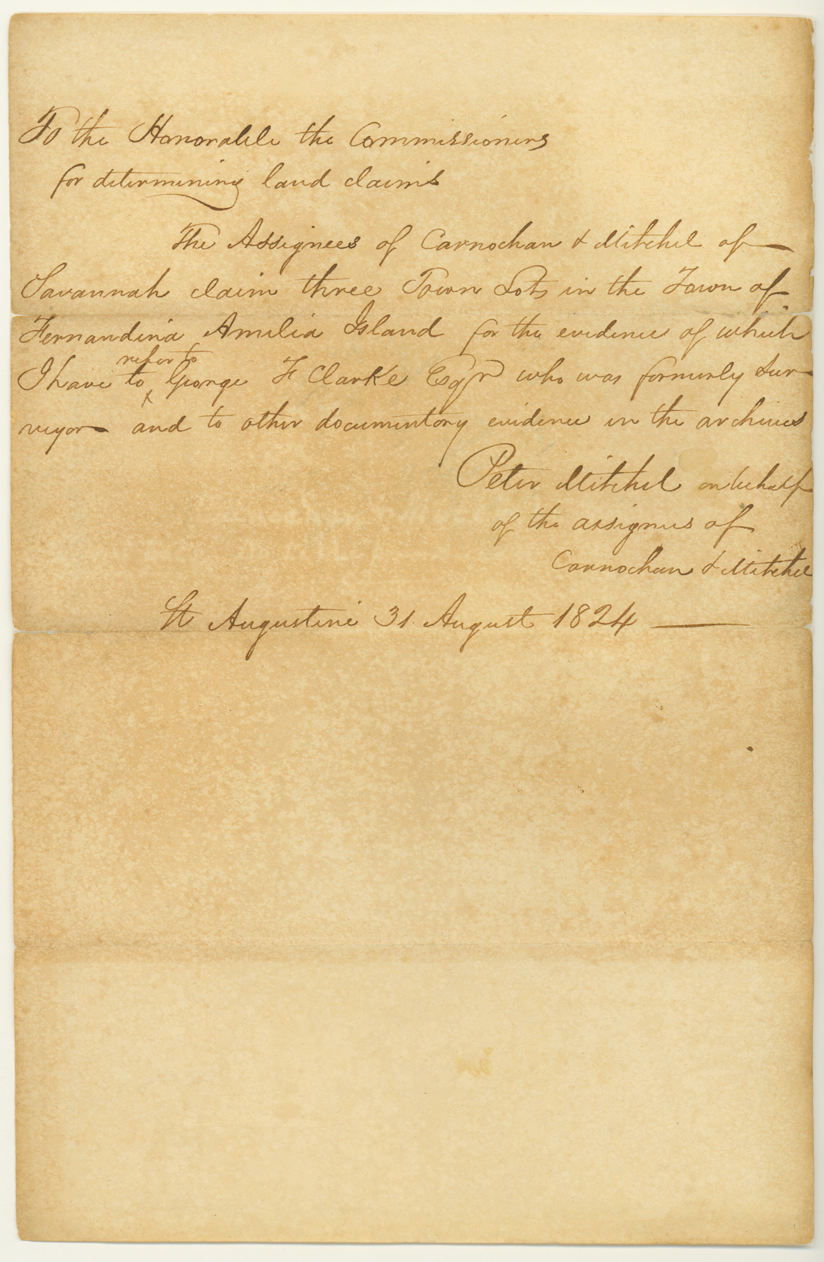 To the Honorable the Commissioners
for determining land claims
The Assignees of Carnochan & Mitchel of
Savannah claim three Town Lots in the Town of
Fernandina Amelia Island for the evidence of which
refer to
I have to George F Clarke Esqr who was formerly Sur
veyor and to other documentory evidence in the archives
Peter Mitchel on behalf
of the assignees of
Carnochan & Mitchel
St Augustine 31 August 1824